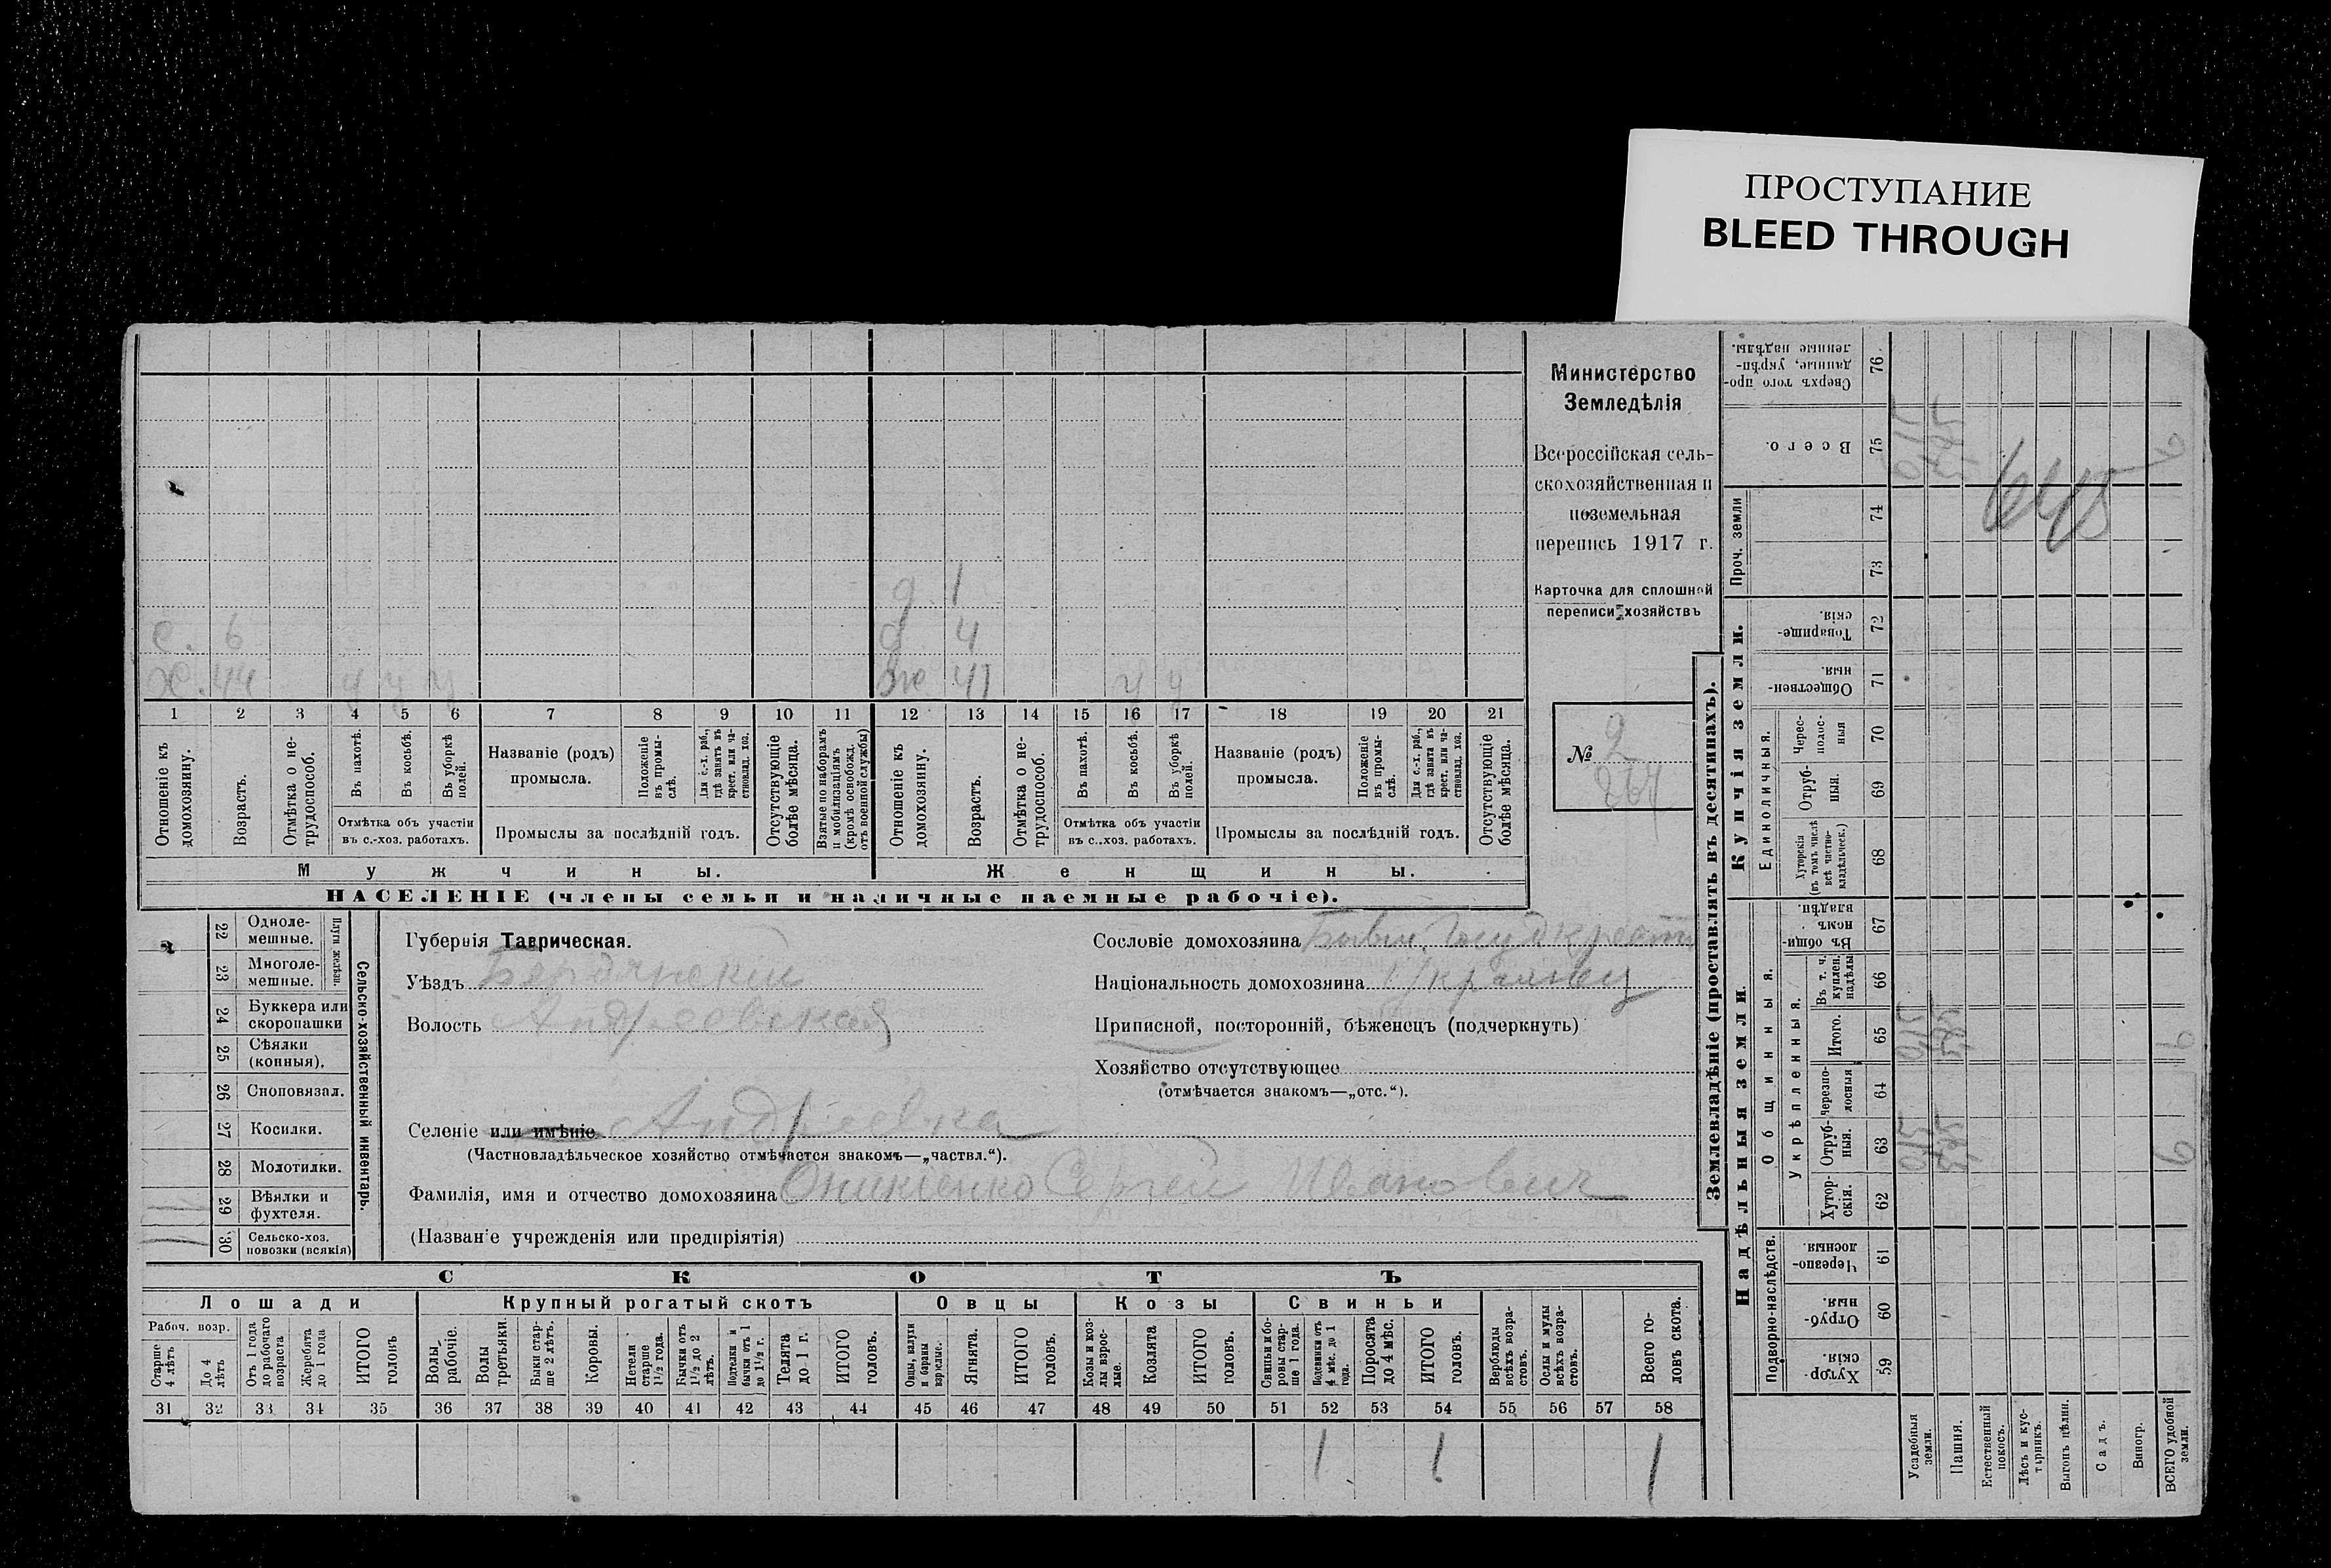 ПРОСТУПАНИЕ
BLEED THROUGH
Министерство
Земледѣлія
Всероссійская сель-
скохозяйственная и
поземельная
перепись 1917 г.
Карточка для сплошной
переписи хозяйствъ
№ 2
264
д. 1
с. 6 д 4
х. 44 ч ч ч ж 41 ч ч
1 2 3 4 5 6 7 8 9 10 11 12 13 14 15 16 17 18 19 20 21
Отношеніе къ домохозяину.
Возрастъ.
Отмѣтка о не-трудоспособ.
Въ пахотѣ.
Въ косьбѣ.
Въ уборкѣ полей.
Отмѣтка объ участіи
въ с.-хоз. работахъ.
Названіе (родъ)
промысла.
Положеніе въ промы-слѣ.
Для с.-х. раб., гдѣ занятъ въ крест. или ча-стновлад. хоз.
Промыслы за послѣдній годъ.
Отсутствующіе болѣе мѣсяца.
Взятые по наборамъ и мобилизаціямъ (кромѣ освобожд. отъ военной службы)
Отношеніе къ домохозяину.
Возрастъ.
Отмѣтка о не-трудоспособ.
Въ пахотѣ.
Въ косьбѣ.
Въ уборкѣ полей.
Отмѣтка объ участіи
въ с..хоз. работахъ.
Названіе (родъ)
промысла.
Положеніе въ промы-слѣ.
Для с.-х. раб., гдѣ занята въ крест. или ча-стновлад. хоз.
Промыслы за послѣдній годъ.
Отсутствующіе болѣе мѣсяца.
Мужчины. Женщины.
НАСЕЛЕНІЕ (члены семьи и наличные наемные рабочіе).
Сельско-хозяйственный инвентарь.
Плуги желѣзн.
22 Одноле-мешные.
23 Многоле-мешные.
24 Буккера или скоропашки
25 Сѣялки (конныя).
26 Сноповязал.
27 Косилки.
28 Молотилки.
29 Вѣялки и фухтеля.
30 Сельско-хоз. повозки (всякія)
Губернія Таврическая.
Уѣздъ Бердянскій
Волость Андреевская
Сословіе домохозяина
Національность домохозяина Украинец
Приписной, посторонній, бѣженецъ (подчеркнуть)
Хозяйство отсутствующее
(отмѣчается знакомъ—„отс.“).
Селеніе или имѣніе Андреевка
(Частновладѣльческое хозяйство отмѣчается знакомъ—„частвл.“).
Фамилія, имя и отчество домохозяина Оникіенко Сергій Иванович
(Названіе учрежденія или предпріятія)
СКОТЪ
Лошади Крупный рогатый скотъ Овцы Козы Свиньи
Рабоч. возр.
Старше 4 лѣтъ
До 4 лѣтъ
Отъ 1 года до рабочаго возраста
Жеребята до 1 года
ИТОГО головъ
Волы рабочіе.
Волы третьяки.
Быки стар-ше 2 лѣтъ.
Коровы.
Нетели старше 1½ года.
Бычки отъ 1½ до 2 лѣтъ.
Подтелки и бычки отъ 1 до 1½ г.
Телята до 1 г.
ИТОГО головъ.
Овцы, валухи и бараны взрослые.
Ягнята.
ИТОГО головъ.
Козы и коз-лы взрос-лые.
Козлята
ИТОГО головъ.
Свиньи и бо-ровы стар-ше 1 года.
Подсвинки отъ 4 мѣс. до 1 года.
Поросята до 4 мѣс.
ИТОГО головъ.
Верблюды всѣхъ возра-стовъ.
Ослы и мулы всѣхъ возра-стовъ.
Всего го-ловъ скота.
31 32 33 34 35 36 37 38 39 40 41 42 43 44 45 46 47 48 49 50 51 52 53 54 55 56 57 58
1 1 1
Землевладѣніе (проставлять въ десятинахъ).
Купчія земли.
Надѣльныя земли.
Сверхъ того про-данные, укрѣп-ленные надѣлы. 76
Всего. 75
Проч. земли
74
73
Товарище-скія 72
Обществен-ныя 71
Единоличныя.
Черес-полос-ныя 70
Отруб-ныя. 69
Хуторскія (въ томъ числѣ всѣ частно-владѣльческ.) 68
Общинныя.
Въ общин-номъ владѣн. 67
Укрѣпленныя.
Въ т. ч. куплен. надѣлы 66
Итого. 65
Черезпо-лосныя 64
Отруб-ныя. 63
Хутор-скія. 62
Подворно-наслѣдств.
Черезпо-лосныя. 61
Отруб-ныя. 60
Хутор-скія. 59
Усадебныя земли.
Пашня.
Естественный покосъ.
Лѣсъ и кус-тарникъ.
Выгонъ цѣлин.
Садъ.
Виногр.
ВСЕГО удобной земли.
9
9
9